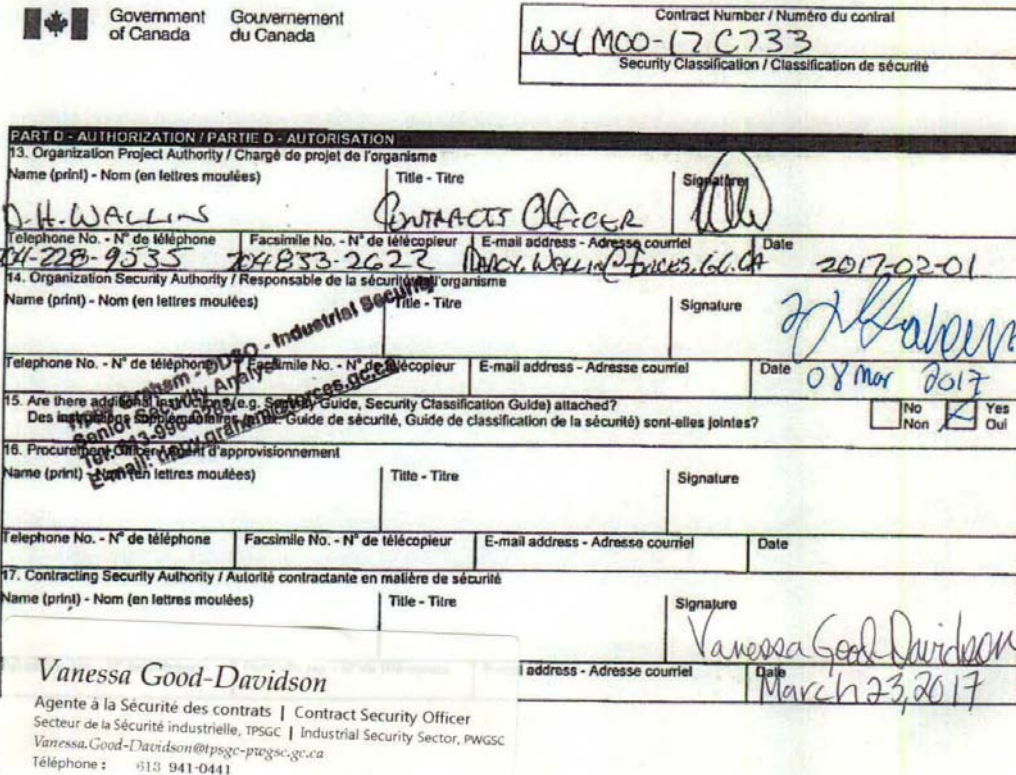 Government Gouvernement
of Canada du Canada
Contract Number / Numéro du contrat
W4M00-17C733
Security Classification / Classification de sécurité
PART D - AUTHORIZATION / PARTIE D - AUTORISATION
13. Organization Project Authority / Chargé de projet de l'organisme
Name (print) - Nom (en lettres moulées) Title - Titre Signature
D.H. WALLIN CONTRACTS OFFICER
Telephone No. - N° de téléphone Facsimile No. - N° de télécopieur E-mail address - Adresse courriel Date
204-228-9535 204833-2622 DARCY.WALLIN@FORCES.GC.CA 2017-02-01
14. Organization Security Authority / Responsable de la sécurité de l'organisme
Name (print) - Nom (en lettres moulées) Title - Titre Signature
DDSO - Industrial Security
Senior Security Analyst
Telephone No. - N° de téléphone Facsimile No. - N° de télécopieur E-mail address - Adresse courriel Date
08 Mar 2017
15. Are there additional instructions (e.g. Security Guide, Security Classification Guide) attached? No Yes
Des instructions supplémentaires (p. ex. Guide de sécurité, Guide de classification de la sécurité) sont-elles jointes? Non Oui
16. Procurement Officer / Agent d'approvisionnement
Name (print) - Nom (en lettres moulées) Title - Titre Signature
Telephone No. - N° de téléphone Facsimile No. - N° de télécopieur E-mail address - Adresse courriel Date
17. Contracting Security Authority / Autorité contractante en matière de sécurité
Name (print) - Nom (en lettres moulées) Title - Titre Signature
Vanessa Good Davidson
address - Adresse courriel Date
March 23, 2017
Vanessa Good-Davidson
Agente à la Sécurité des contrats | Contract Security Officer
Secteur de la Sécurité industrielle, TPSGC | Industrial Security Sector, PWGSC
Vanessa.Good-Davidson@tpsgc-pwgsc.gc.ca
Téléphone : 613 941-0441